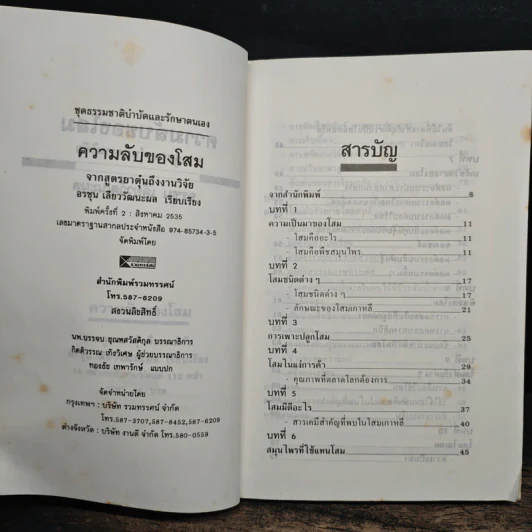 ชุดธรรมชาติบำบัดและรักษาตนเอง
ความลับของโสม
จากสูตรยาตุ๋นถึงงานวิจัย
อรชุน เลียววัฒนะผล เรียบเรียง
พิมพ์ครั้งที่ 2 : สิงหาคม 2535
เลขมาตราฐานสากลประจำหนังสือ 974-85734-3-5
จัดพิมพ์โดย
สำนักพิมพ์รวมทรรศน์
โทร.587-6209
สงวนลิขสิทธิ์
นพ.บรรจบ ชุณหสวัสดิกุล บรรณาธิการ
กิตติวรรณ เทิงวิเศษ ผู้ช่วยบรรณาธิการ
ทองธัช เทพารักษ์ แบบปก
จัดจำหน่ายโดย
กรุงเทพฯ : บริษัท รวมทรรศน์ จำกัด
โทร.587-3707,587-6452,587-6209
ต่างจังหวัด : บริษัท งานดี จำกัด โทร.580-0559
สารบัญ
จากสำนักพิมพ์ 8
บทที่ 1
ความเป็นมาของโสม 11
- โสมคืออะไร 11
- โสมคือพืชสมุนไพร 11
บทที่ 2
โสมชนิดต่าง ๆ 17
- โสมชนิดต่าง ๆ 17
- ลักษณะของโสมเกาหลี 21
บทที่ 3
การเพาะปลูกโสม 25
บทที่ 4
โสมในแง่การค้า
- คุณภาพที่ตลาดโลกต้องการ 34
บทที่ 5
โสมมีดีอะไร 37
- สารเคมีสำคัญที่พบในโสมเกาหลี 40
บทที่ 6
สมุนไพรที่ใช้แทนโสม 45